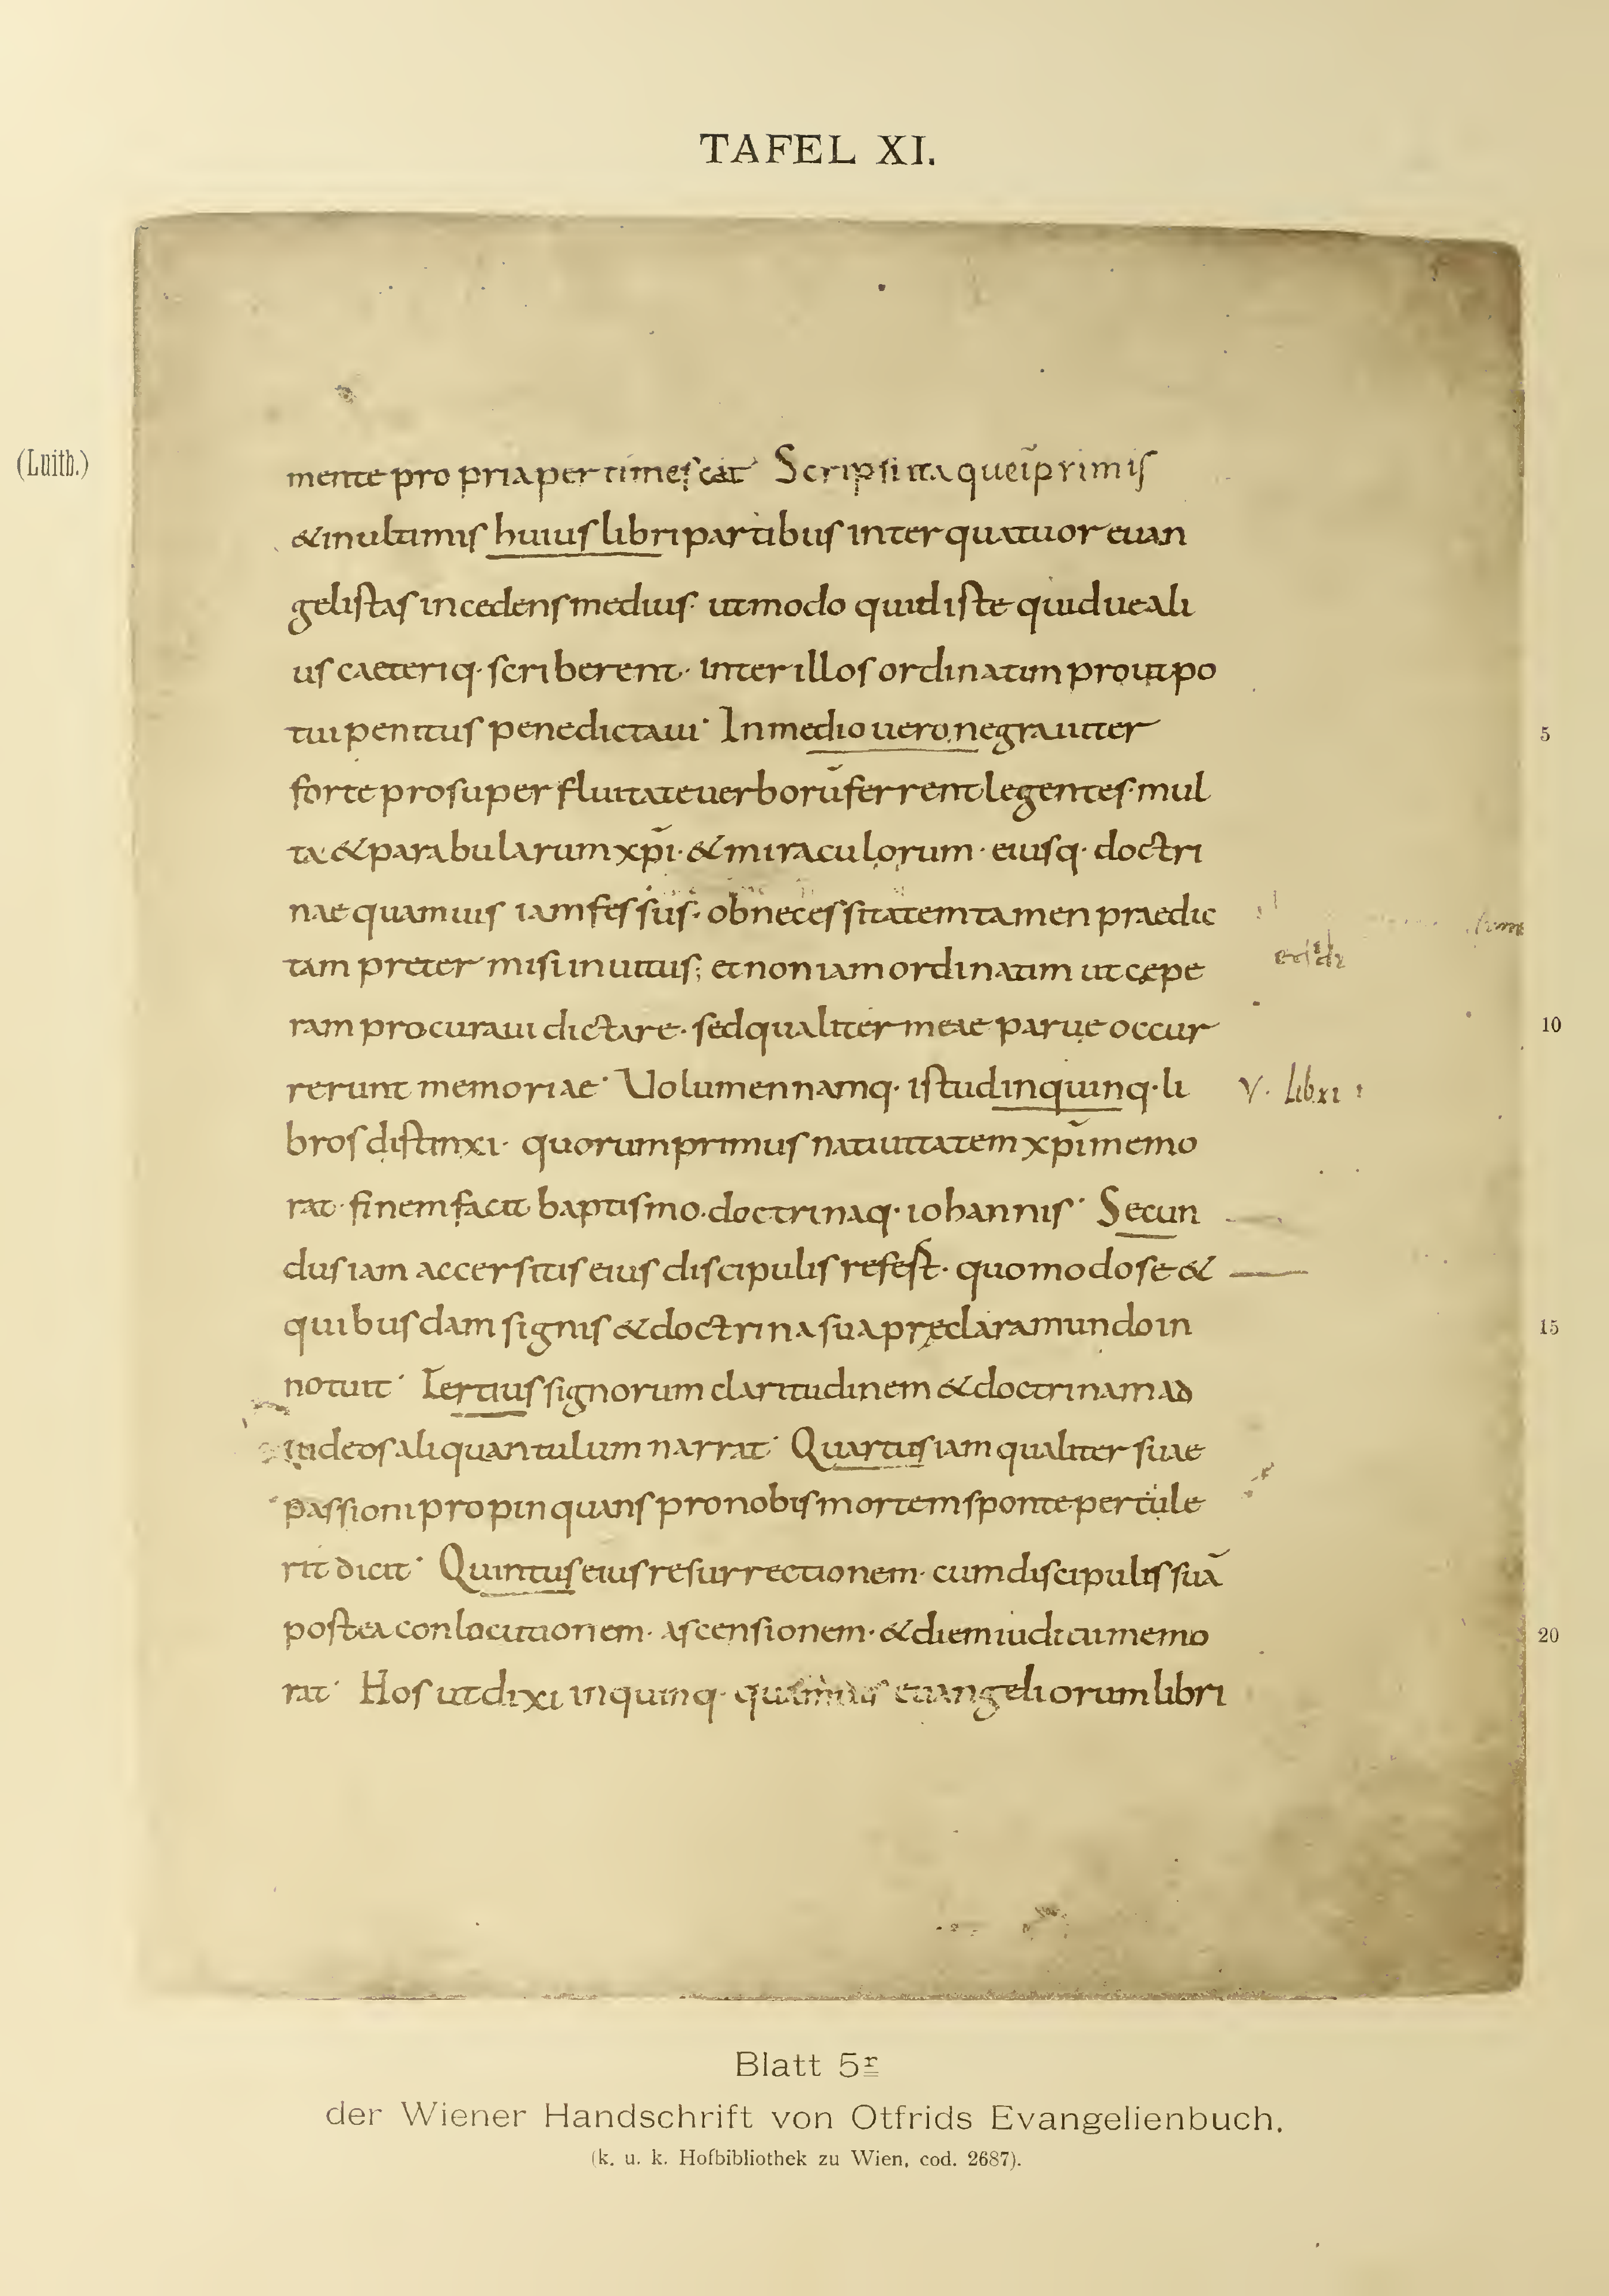 TAFEL XI.
(Luith.)
mente propria pertimescat· Scripsi itaque ī primis
& in ultimis huius libri partibus inter quatuor euan
gelistas incedens medius· ut modo quid iste quidue ali
us caeteriq· scriberent· inter illos ordinatim prout po
tui penitus pene dictaui· In medio uero ne grauiter 5
forte pro superfluitate uerborū ferrent legentes· mul
ta & parabularum xp̄i· & miraculorum· eiusq· doctri
nae quamuis iam fessus· ob necessitatem tamen praedic
tam preter misi inuitus; et non iam ordinatim ut cępe
ram procuraui dictare· sed qualiter meae paruę occur 10
rerunt memoriae· Uolumen namq· istud in quinq· li V. libxi
bros distinxi· quorum primus natiuitatem xp̄i memo
rat· finem facit baptismo· doctrinaq· iohannis· Secun
dus iam accersitis eius discipulis refert· quomodo se &
quibusdam signis & doctrina sua pręclara mundo in 15
notuit· Tertius signorum claritudinem & doctrinam ad
iudeos aliquantulum narrat· Quartus iam qualiter suae
passioni propinquans pro nobis mortem sponte pertule
rit dicit· Quintus eius resurrectionem· cum discipulis suā
postea conlocutionem· ascensionem· & diem iudicii memo 20
rat· Hos ut dixi in quinq· quamuis euangeliorum libri
Blatt 5r
der Wiener Handschrift von Otfrids Evangelienbuch.
(k. u. k. Hofbibliothek zu Wien, cod. 2687).